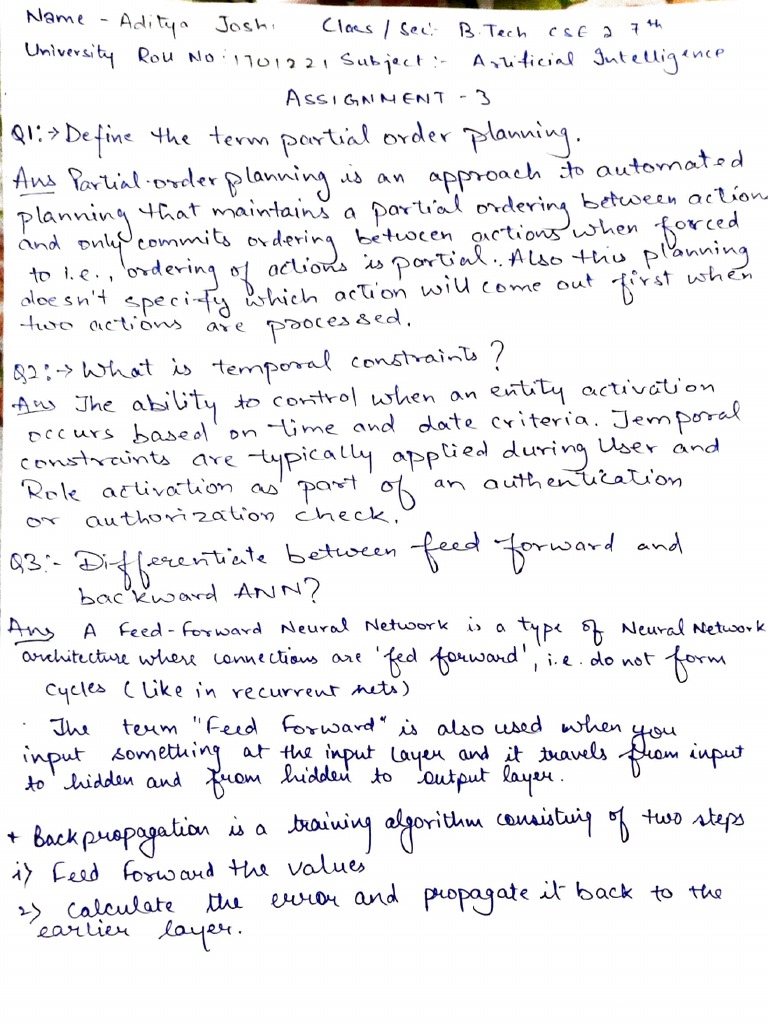 Name - Aditya Joshi Class / Sec:- B.Tech CSE 2 7th
University Roll No:- 1701221 Subject:- Artificial Intelligence
ASSIGNMENT - 3
Q1:→ Define the term partial order planning.
Ans Partial-order planning is an approach to automated
planning that maintains a partial ordering between action
and only commits ordering between actions when forced
to i.e., ordering of actions is partial. Also this planning
doesn't specify which action will come out first when
two actions are processed.
Q2:→ What is temporal constraints?
Ans The ability to control when an entity activation
occurs based on time and date criteria. Temporal
constraints are typically applied during User and
Role activation as part of an authentication
or authorization check.
Q3:- Differentiate between feed forward and
backward ANN?
Ans A Feed-Forward Neural Network is a type of Neural Network
architecture where connections are 'fed forward', i.e. do not form
cycles (like in recurrent nets)
· The term "Feed Forward" is also used when you
input something at the input layer and it travels from input
to hidden and from hidden to output layer.
+ Backpropagation is a training algorithm consisting of two steps
i) Feed Forward the values
2) Calculate the error and propagate it back to the
earlier layer.